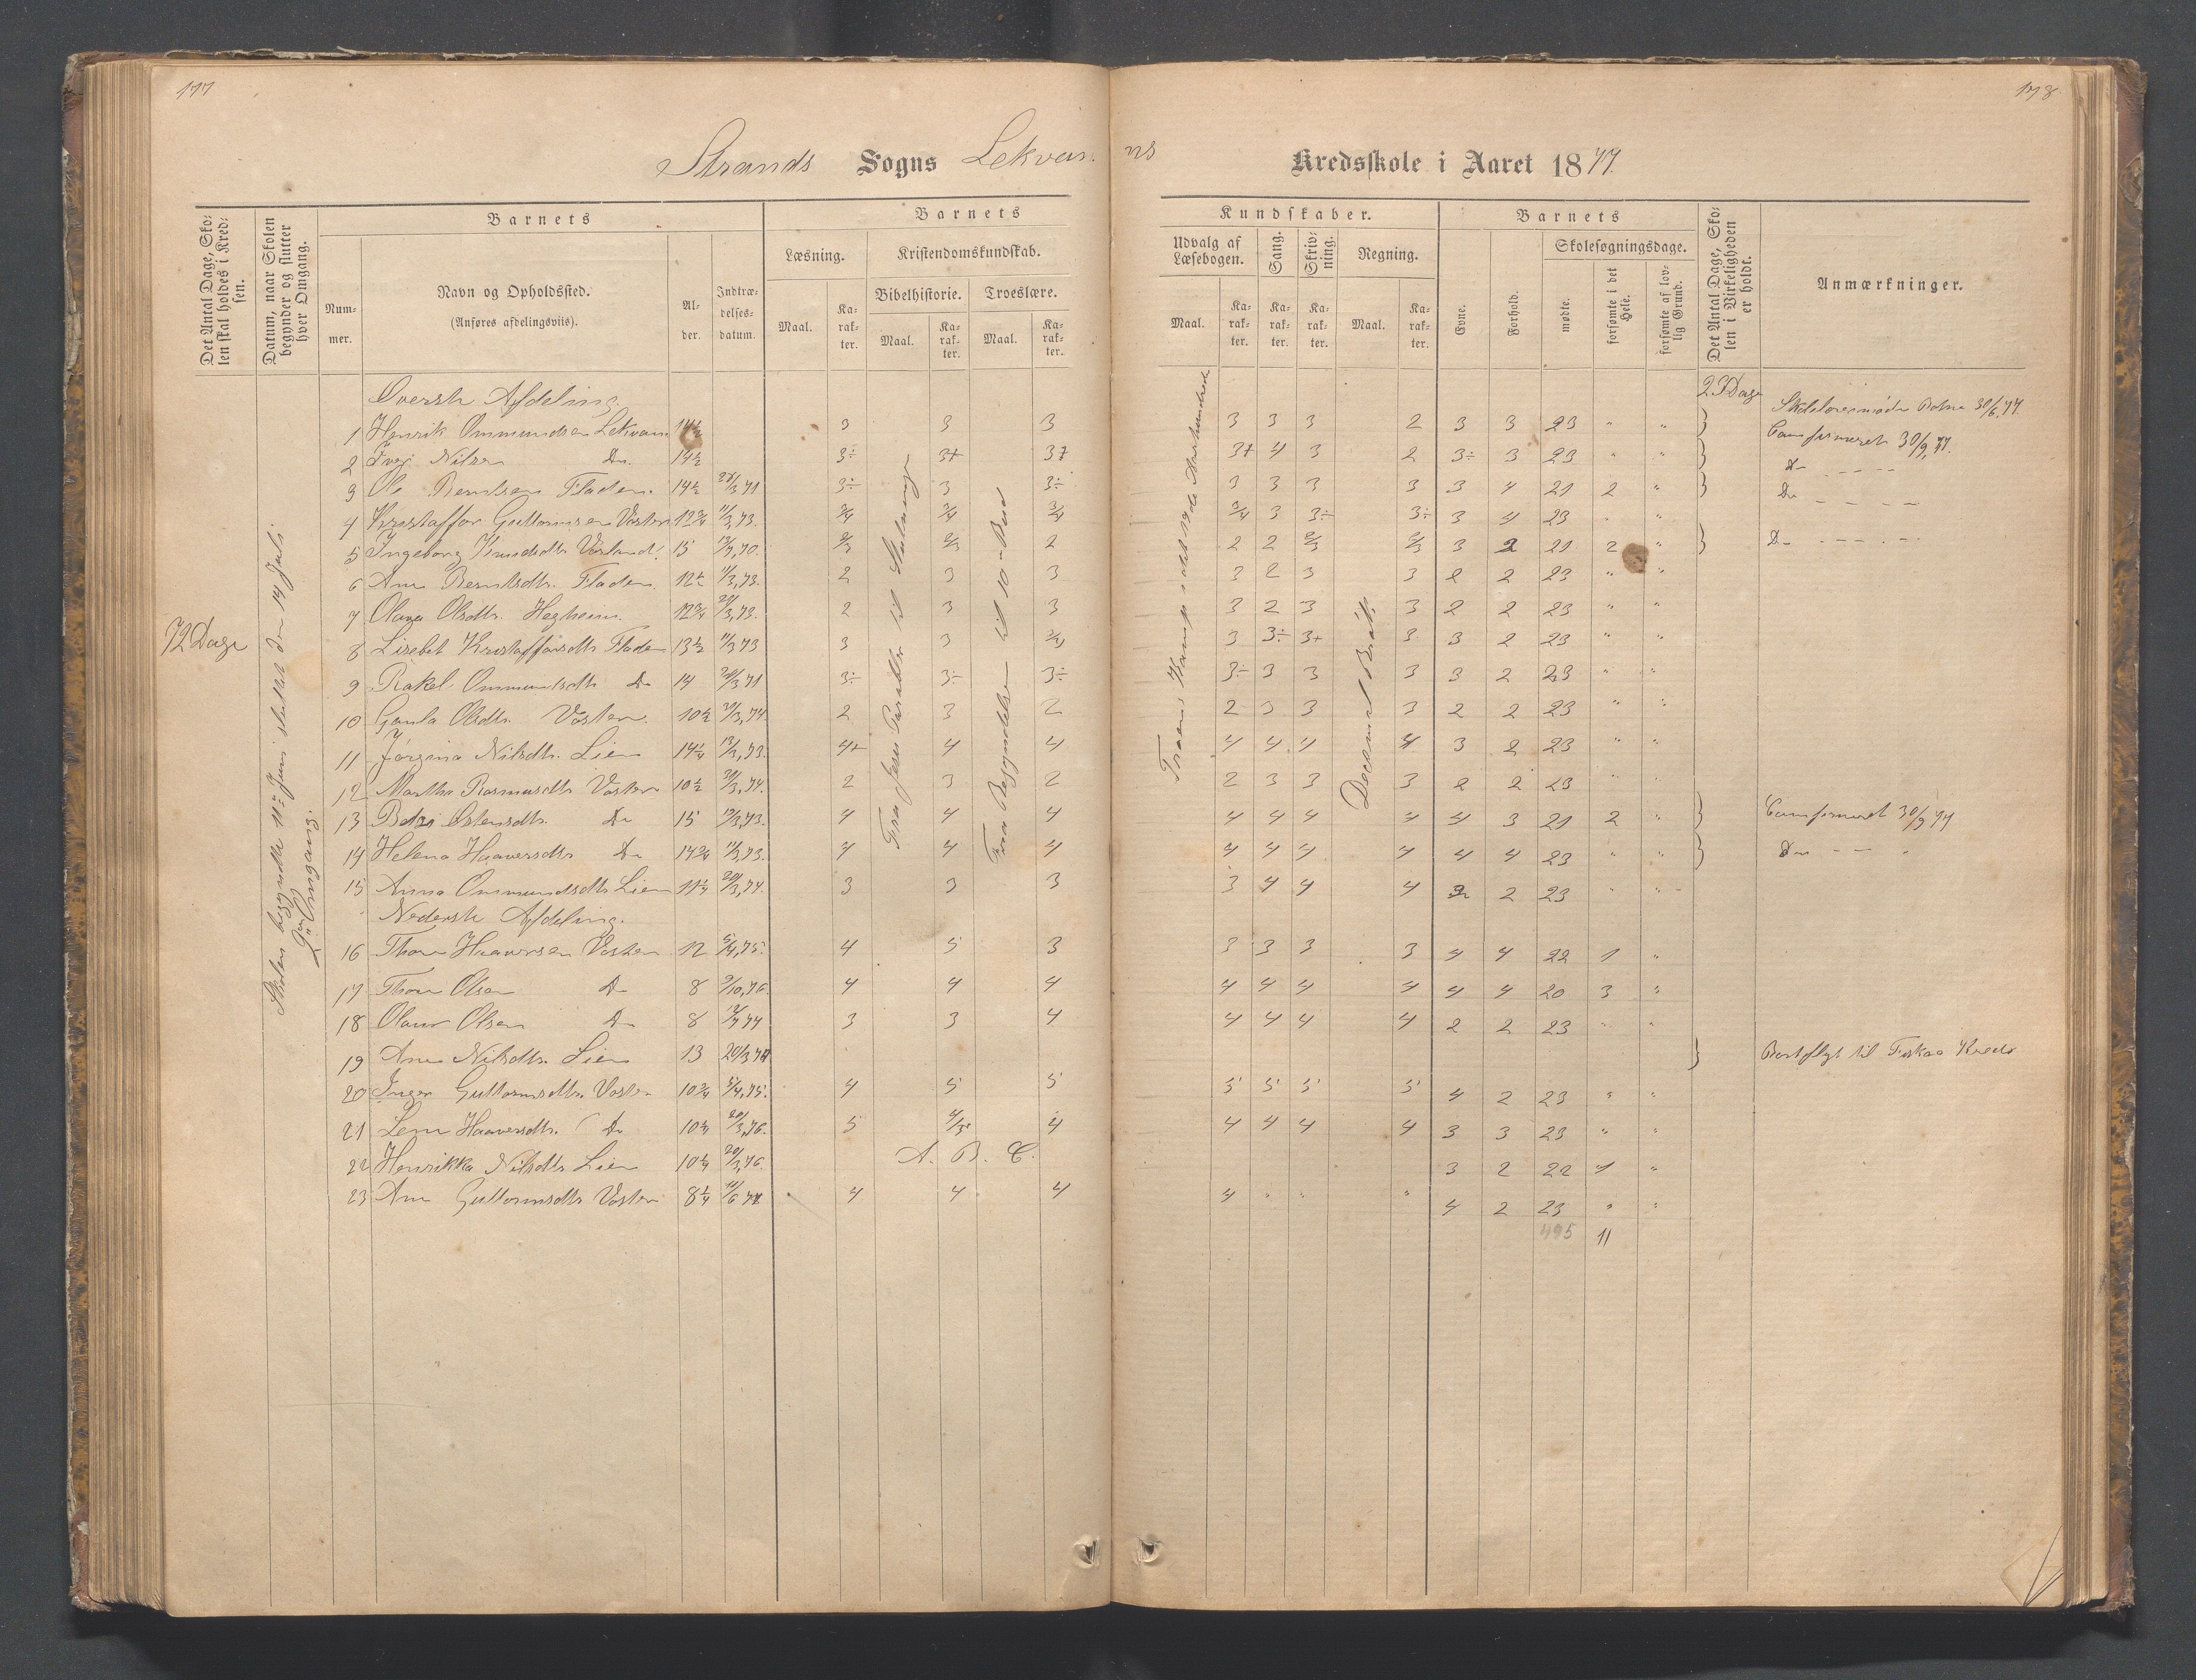 177
178
Strands Sogns Lekvams Kredsskole i Aaret 1877.
Det Antal Dage, Skolen skal holdes i Kredsen.
Datum, naar Skolen begynder og slutter hver Omgang.
Barnets
Nummer.
Navn og Opholdssted.
(Anføres afdelingsviis).
Alder.
Indtrædelsesdatum.
Barnets
Læsning.
Kristendomskundskab.
Bibelhistorie.
Troeslære.
Maal.
Karakter.
Maal.
Karakter.
Maal.
Karakter.
Kundskaber.
Udvalg af Læsebogen.
Sang.
Skrivning.
Regning.
Maal.
Karakter.
Karakter.
Karakter.
Maal.
Karakter.
Barnets
Evne.
Forhold.
Skolesøgningsdage.
mødte.
forsømte i det Hele.
forsømte af lovlig Grund.
Det Antal Dage, Skolen i Virkeligheden er holdt.
Anmærkninger.
72 Dage
Skolen begyndte 11te Juni sluttet den 14 Juli.
Omgang.
Decimal Brøk
23 Dage
Øverste Afdeling.
1 Henrik Ommundsen Lekvam 14½ 3 3 3 3 3 3 2 3 3 23 " " Confirmeret 30/9,77.
2 Nilsen Do. 14½ 3÷ 3+ 3+ 3+ 4 3 2 3÷ 3 23 " " Do - - - -
3 Ole Berntsen Fladen. 14½ 28/3 71 3÷ 3 3÷ 3 3 3 3 3 4 21 2 " Do - - - -
4 Kristoffer Guttormsen Vosten 12¾ 11/3,73. 3/4 3/4 3/4 3/4 3 3÷ 3÷ 3 4 23 " "
5 Ingeborg 15 2/3 2/3 2 2 2 2/3 2/3 3 2 21 2 " Do - - - -
6 Ane Berntsdtr. Fladen. 12½ 11/3,73. 2 3 3 3 2 3 3 2 2 23 " "
7 Olava Olsdtr. Hegheim. 12¾ 2 3 3 3 2 3 3 2 2 23 " "
8 Lisebet Kristoffersdtr Fladen 13½ 11/3 73 3 3 3/4 3 3÷ 3+ 3 3 2 23 " "
9 Rakel Ommundsdtr Do 14 3÷ 3÷ 3÷ 3÷ 3 3 3 3 2 23 " "
10 Olsdtr. Vosten. 10½ 2 3 2 2 3 3 3 2 2 23 " "
11 Jørgina Nilsdtr. Lien 14¼ 4+ 4 4 4 4 4 4 3 2 23 " "
12 Martha Rasmusdtr Vosten 10½ 2 3 2 2 3 3 3 2 2 23 " "
13 Østensdtr. Do 15 4 4 4 4 4 4 4 4 3 21 2 " Confirmeret 30/9 77
14 Helena Haaversdtr Do 14¾ 11/3,73. 4 4 4 4 4 4 4 4 4 23 " " Do - - -
15 Anna Ommundsdtr Lien 11¼ 3 3 3 3 4 4 4 2 2 23 " "
Nederste Afdeling.
16 Thore Haaversen Vosten 12 5/4,75. 4 5 3 3 3 3 3 4 4 22 1 "
17 Thore Olsen Do 8 9/10,76. 4 4 4 4 4 4 4 4 4 20 3 "
18 Olaus Olsen Do 8 3 3 4 4 4 4 4 2 2 23 " "
19 Ane Nilsdtr. Lien 13 Bortflyt til Fiskaa Kreds
20 Inger Guttormsdtr. Vosten 10¾ 5/4,75. 4 5 5 5 5 5 5 4 2 23 " "
21 Lene Haaversdtr. Do 20/3,76. 5 4/5 4 4 4 4 4 3 3 23 " "
22 Henrikka Nilsdtr Lien 10¼ 20/3,76 A. B. C. 3 2 22 1 "
23 Ane Guttormsdtr Vosten 8¼ 4 4 4 4 " " " 4 2 23 " "
495 11